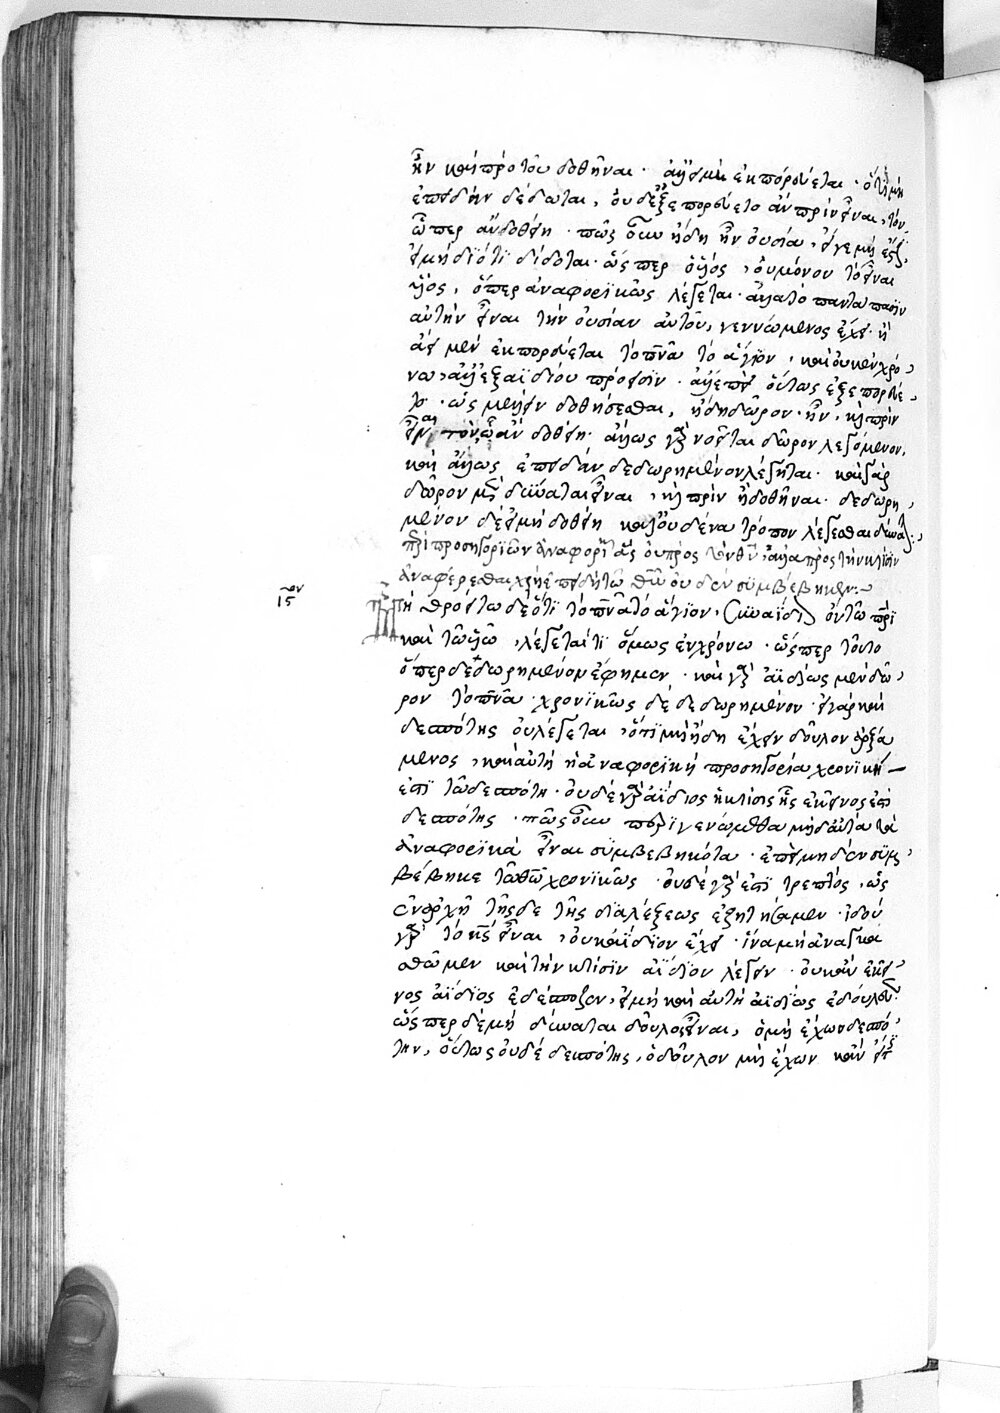 ἦν καὶ πρὸ τοῦ δοθῆναι · ἀεὶ ἐκπορεύεται · ὅτι μὴ
ἐπειδὴν δέδωται, οὐδ' ἐξεπορεύετο ἂν πρὶν εἶναι, τὸν
ᾧπερ ἂν δοθείη · πῶς οὖν ἤδη ἦν οὐσία, εἴγε μὴ
εἰ μὴ διότι δίδοται · ὥσπερ ὁ υἱός, οὐ μόνον τὸ εἶναι
υἱός, ὅπερ ἀναφορικῶς λέγεται · ἀλλὰ τὸ πάντα πᾶσιν
αὐτὴν εἶναι τὴν οὐσίαν αὐτοῦ, γεννώμενος ἔχει · ἢ
ἀεὶ μὲν ἐκπορεύεται τὸ πνᾶ τὸ ἅγιον, καὶ οὐκ ἐν χρό
νω, ἀλλ' ἐξ ἀϊδίου πρόεισιν · ἀλλ' ἐπεὶ οὕτως ἐξεπορεύε
το · ὡς μέλλειν δοθήσεσθαι, ἤδη δῶρον ἦν, καὶ πρὶν
εἶναι τὸν ᾧ ἂν δοθείη · ἄλλως γὰρ νοεῖται δῶρον λεγόμενον,
καὶ ἄλλως ἐπειδὰν δεδωρημένον λέγηται · καὶ γὰρ
δῶρον μὲν δύναται εἶναι, καὶ πρὶν ἢ δοθῆναι · δεδωρη
μένον δὲ εἰ μὴ δοθείη κατ' οὐδένα τρόπον λέγεσθαι δύναται :
περὶ προσηγοριῶν ἀναφορικῶς οὐ πρὸς τὸν θν, ἀλλὰ πρὸς τὴν κτίσιν
ἀναφέρεσθαι χρὴ ἐπειδὴ τῶ θῶ οὐδὲν συμβέβηκεν :
ις ον
Μὴ θροείτω δὲ ὅτι τὸ πνᾶ τὸ ἅγιον, συναΐδιον ὂν τῶ πρὶ
καὶ τῶ υἱῶ, λέγεταί τι ὅμως ἐν χρόνω · ὥσπερ τοῦτο
ὅπερ δεδωρημένον ἔφημεν · καὶ γὰρ ἀϊδίως μὲν δῶ
ρον τὸ πνᾶ · χρονικῶς δὲ δεδωρημένον · εἰ γὰρ καὶ
δεσπότης οὐ λέγεται, ὅτι μὴ ἤδη ἔχειν δοῦλον ἀρξά
μενος, καὶ αὐτὴ ἡ ἀναφορικὴ προσηγορία χρονικὴ
ἐπὶ τῶ δεσπότη · οὐδὲ γὰρ ἀΐδιος ἡ κτίσις ἧς ἐκεῖνος ἐστὶ
δεσπότης · πῶς οὖν περιγενώμεθα μηδ' αὐτὰ τὰ
ἀναφορικὰ εἶναι συμβεβηκότα · ἐπεὶ μηδὲν συμ
βέβηκε τῶ θῶ χρονικῶς · οὐδὲ γάρ ἐστι τρεπτός, ὡς
ἐν ἀρχῇ τῆς δὲ τῆς διαλέξεως ἐζητήσαμεν · ἰδοὺ
γὰρ τὸ κς εἶναι, οὐκ ἀΐδιον ἔχει · ἵνα μὴ ἀναγκα
σθῶμεν καὶ τὴν κτίσιν ἀΐδιον λέγειν · οὐκ ἂν ἐκεῖ
νος ἀϊδίως ἐδέσποζεν, εἰ μὴ καὶ αὐτὴ ἀϊδίως ἐδούλευεν ·
ὥσπερ δὲ μὴ δύναται δοῦλος εἶναι, ὁ μὴ ἔχων δεσπό
την, οὕτως οὐδὲ δεσπότης, ὁ δοῦλον μὴ ἔχων κἂν